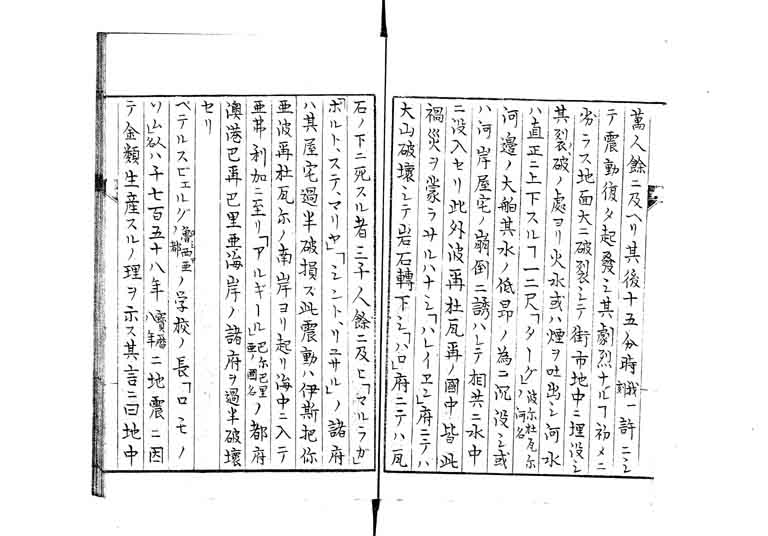 萬人餘ニ及ヘリ其後十五分時我一刻許ニシ
テ震動復タ起發シ其劇烈ナルヿ初メニ
劣ラス地面大ニ破裂シテ街市地中ニ埋没シ
其裂破ノ處ヨリ火水或ハ煙ヲ吐出シ河水
ハ直正ニ上下スルヿ一二尺「ターグ」波尓杜瓦尓ノ河名
河邊ノ大船其水ノ低昂ノ為ニ沉没シ或
ハ河岸屋宅ノ崩倒ニ誘ハレテ相共ニ水中
ニ没入セリ此外波再杜瓦再ノ國中皆此
禍災ヲ蒙ラサルハナシ「ハレイエン」府ニテハ
大山破壊シテ岩石轉下シ「ハロ」府ニテハ瓦
石ノ下ニ死スル者三千人餘ニ及ヒ「マルラガ」
「ポルト、ステ、マリヤ」「シント、リュサル」ノ諸府
ハ其屋宅過半破損ス此震動ハ伊斯把你
亜波再杜瓦尓ノ南岸ヨリ起リ海中ニ入テ
亜弗利加ニ至リ「アルギール」巴尓巴里亜ノ國名ノ都府
澳港巴再巴里亜海岸ノ諸府ヲ過半破壊
セリ
ペテルスビュルグ魯西亜ノ都ノ学校ノ長「ロモノ
ソム」人名ハ千七百五十八年寳暦八年ニ地震ニ因
テ金類生産スルノ理ヲ示ス其言ニ曰地中